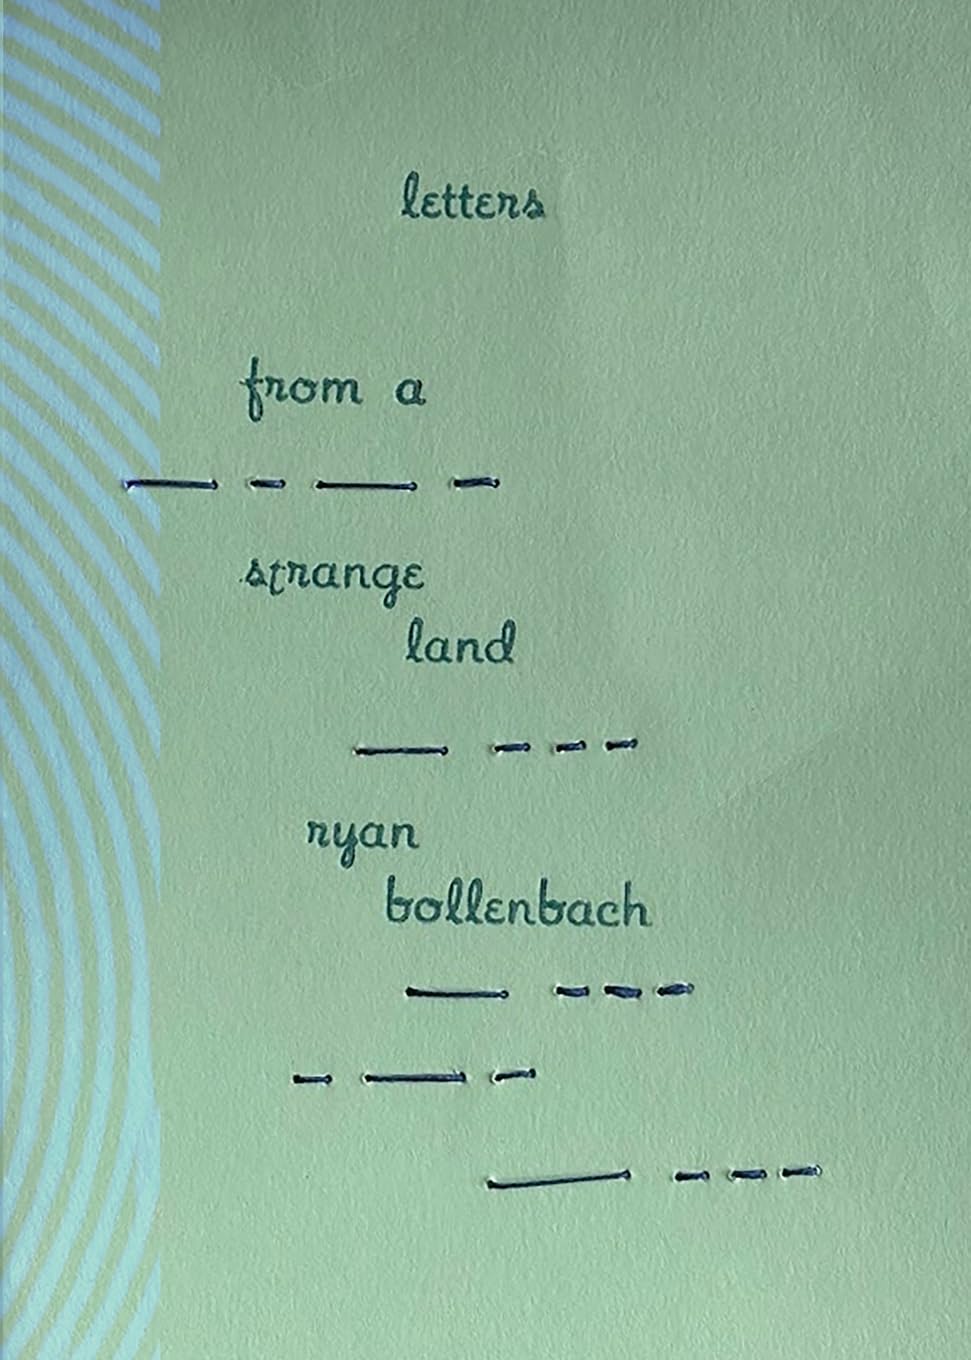 letters
from a
strange
land
ryan
bollenbach